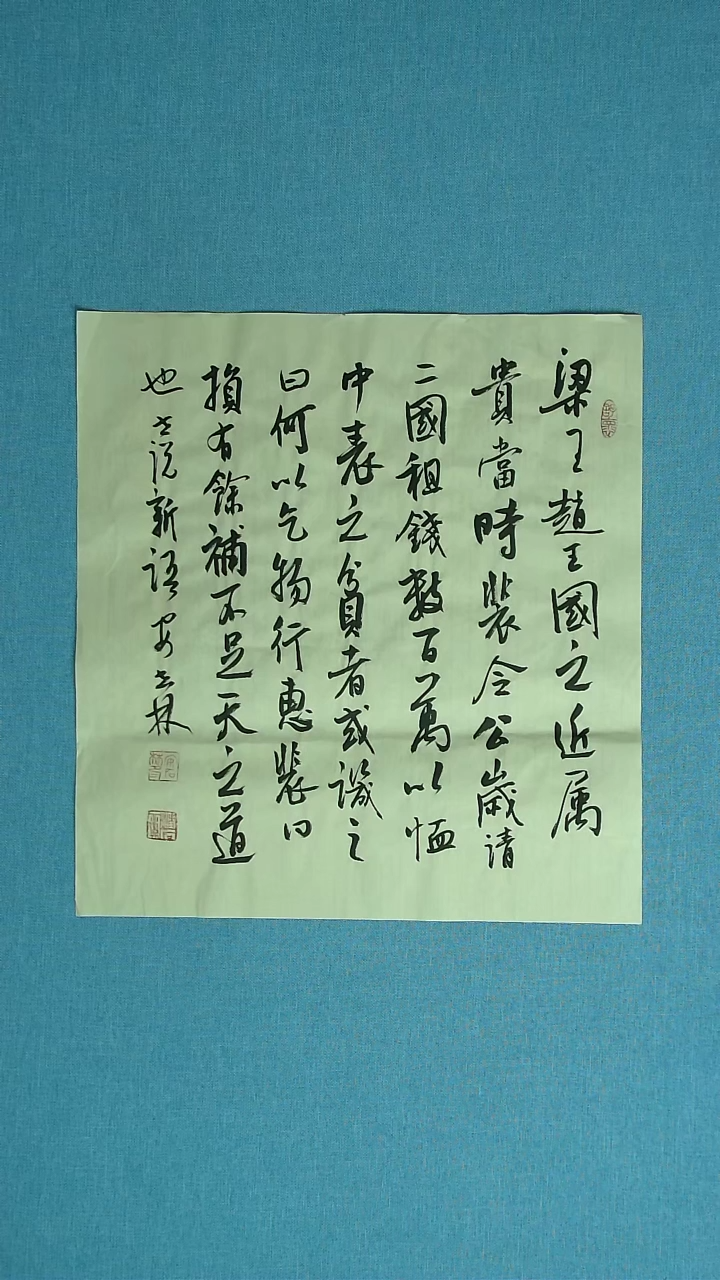 梁王趙王國之近属
貴當時裴令公歲請
二國租錢數百萬以恤
中表之貧者或譏之
曰何以乞物行惠裴曰
損有餘補不足天之道
也 世說新語 安志林